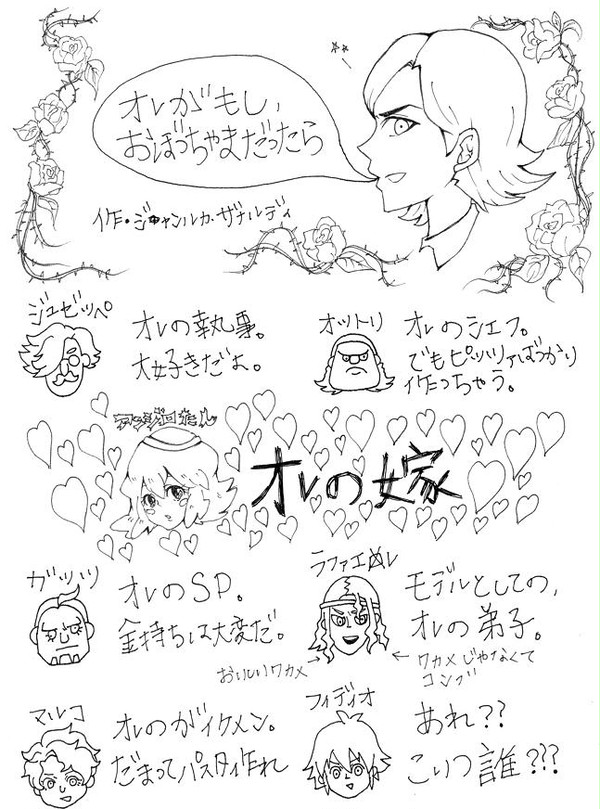 オレがもし、
おぼっちゃまだったら
作・ジャンルカ・ザナルディ
ジュゼッペ
オレの執事。
大好きだよ。
オットリ
オレのシェフ。
でもピッツァばっかり
作っちゃう。
アンジェロたん
オレの嫁
ガッツ
オレのSP。
金持ちは大変だ。
ラファエぬレ
モデルとしての、
オレの弟子。
おいしいワカメ
← ワカメじゃなくて
コンブ
マルコ
オレのがイケメン。
だまってパスタ作れ
フィディオ
あれ??
こいつ誰???